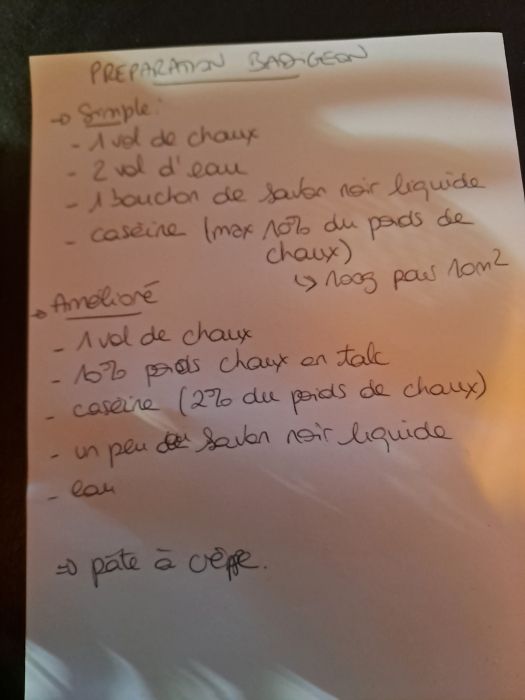 PREPARATION BADIGEON
→ Simple:
- 1 vol de chaux
- 2 vol d'eau
- 1 bouchon de savon noir liquide
- caséine (max 10% du poids de
chaux)
↳ 100g pour 10m²
→ Amélioré
- 1 vol de chaux
- 10% poids chaux en talc
- caséine (2% du poids de chaux)
- un peu de savon noir liquide
- eau
⇒ pâte à crêpe.